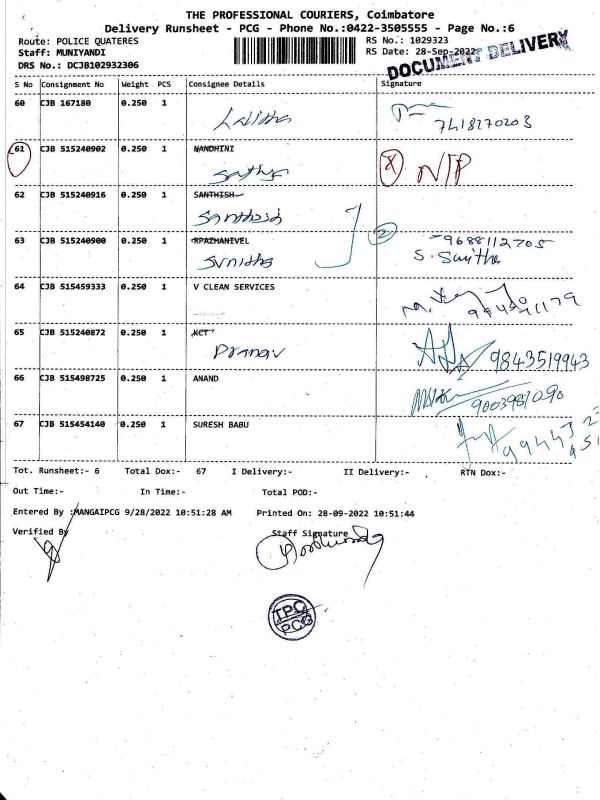 THE PROFESSIONAL COURIERS, Coimbatore
Delivery Runsheet - PCG - Phone No.:0422-3505555 - Page No.:6
Route: POLICE QUATERES RS No.: 1029323
Staff: MUNIYANDI RS Date: 28-Sep-2022
DRS No.: DCJB102932306 DOCUMENT DELIVERY
S No Consignment No Weight PCS Consignee Details Signature
60 CJB 167180 0.250 1
Lalitha 7418270203
61 CJB 515240902 0.250 1 NANDHINI
Sathya N/P
62 CJB 515240916 0.250 1 SANTHISH
Santhosh
63 CJB 515240900 0.250 1 RPAZHANIVEL 2 9688112705
Sunitha S. Sunitha
64 CJB 515459333 0.250 1 V CLEAN SERVICES
65 CJB 515240872 0.250 1 KCT
Pranav 9843519943
66 CJB 515498725 0.250 1 ANAND
9003981090
67 CJB 515454140 0.250 1 SURESH BABU
Tot. Runsheet:- 6 Total Dox:- 67 I Delivery:- II Delivery:- RTN Dox:-
Out Time:- In Time:- Total POD:-
Entered By :MANGAIPCG 9/28/2022 10:51:28 AM Printed On: 28-09-2022 10:51:44
Verified By Staff Signature
TPC
PCG